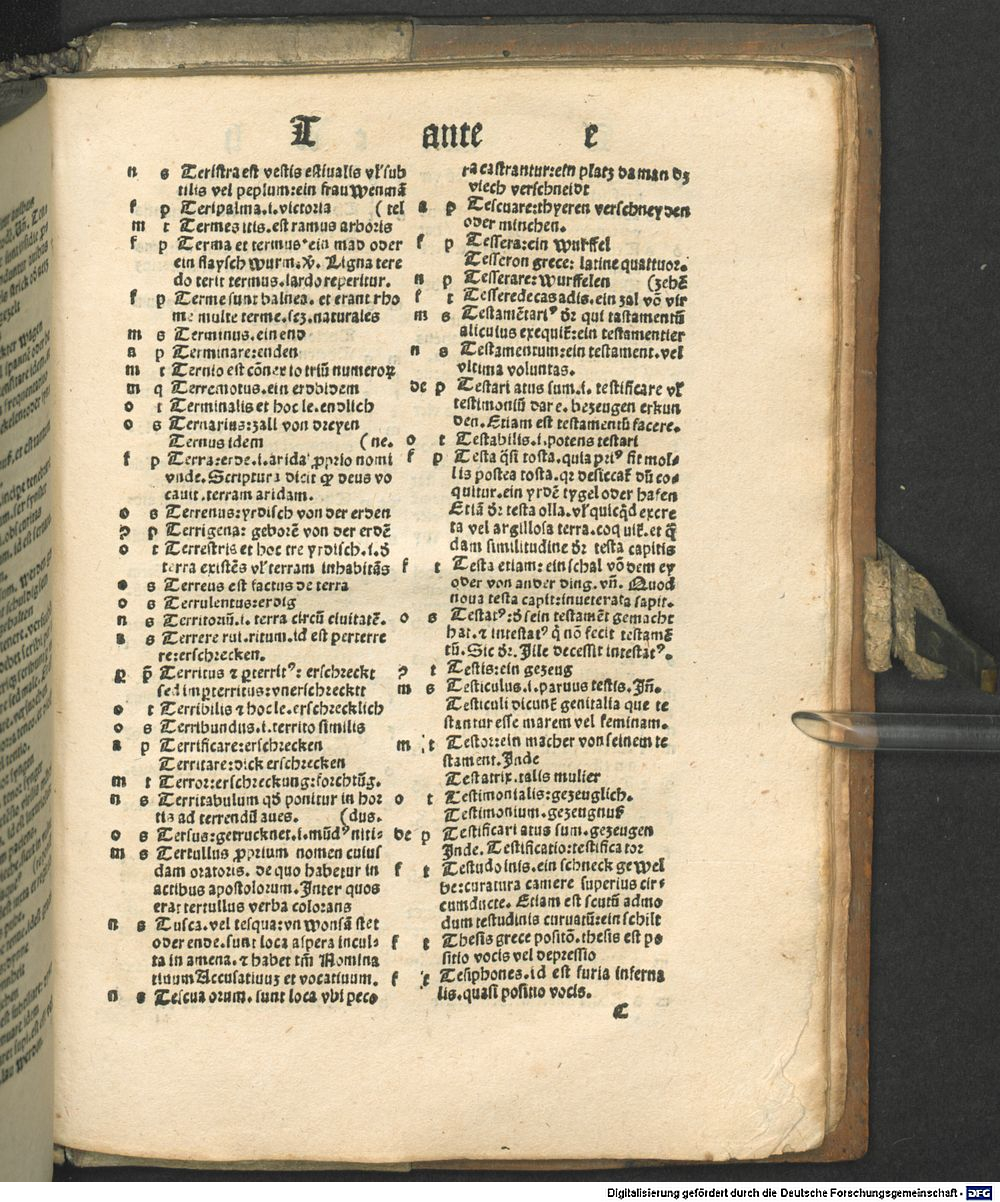 T ante e
n s Teristra est vestis estiualis vl' sub
tilis vel peplum: ein frau wenmā
f p Teripalma .i. victoria (tel
m t Termes itis. est ramus arboris
f p Terma et termus ein mad oder
ein flaysch wurm. Ligna tere
do terit termus. lardo reperitur.
f p Terme sunt balnea. et erant rho
me multe terme. scz. naturales
m s Terminus. ein end
a p Terminare: enden
m t Ternio est cōnexio triū numeroꝝ
m q Terremotus. ein erdbidem
o t Terminalis et hoc le. endlich
o s Ternarius: zall von dreyen
Ternus idem (ne.
f p Terra: erde .i. arida ꝓprio nomi
vnde. Scriptura dicit qꝫ deus vo
cauit. terram aridam.
o s Terrenus: yrdisch von der erden
ꝯ p Terrigena: geborē von der erdē
o t Terrestris et hoc tre yrdisch .i. d'
terra existēs vl' terram inhabitās
o s Terreus est factus de terra
o s Terrulentus: erdig
n s Territoriū .i. terra circū ciuitatē.
a s Terrere rui. ritum. id est perterre
re: erschrecken.
ꝑ p̄ Territus ⁊ ꝑterritꝰ: erschreckt
sed imperterritus: vnerschreckt
o t Terribilis ⁊ hoc le. erschrecklich
o s Terribundus .i. territo similis
a p Terrificare: erschrecken
Territare: dick erschrecken
m t Terror: erschreckung: forchtūg.
n s Territabulum qd' ponitur in hor
tis ad terrendū aues. (dus.
o s Tersus: getrucknet .i. mūdꝰ niti-
m s Tertullus ꝓprium nomen cuius
dam oratoris. de quo habetur in
actibus apostolorum. Inter quos
erat tertullus verba colorans
n s Tusca. vel tesqua: vn wonsā stet
oder ende. sunt loca aspera incul-
ta in amena. ⁊ habet tm̄ Nomina
tiuum Accusatiuuꝫ et vocatiuum.
n s Tescua orum. sunt loca vbi peco
ra castrantur: ein platz da man dz
viech verschneidt
a p Tescuare: thyeren verschneyden
oder minchen.
f p Tessera: ein wurffel
Tesseron grece: latine quattuor.
n p Tesserare: wurffelen (zehē
f t Tesseredecas adis. ein zal vō vir
m s Testamētariꝰ dr̄ qui tastamentū
alicuius exequit̄: ein testamentier
n s Testamentum: ein testament. vel
vltima voluntas.
de p Testari atus sum .i. testificare vl'
testimoniū dare. bezeugen erkun
den. Etiam est testamentū facere.
o t Testabilis .i. potens testari
f p Testa q̄si tosta. quia priꝰ fit mol-
lis postea tosta. qꝛ desiccat̄ dū co-
quitur. ein yrdē tygel oder hafen
Etiā dr̄ testa olla. vl' quicqd excre
ta vel argillosa terra. coquit̄. et q̄
dam similitudine dr̄ testa capitis
f t Testa etiam: ein schal vō dem ey
oder von ander ding. vn̄. Quod
noua testa capit: inueterata sapit.
o s Testatꝰ: d' sein testamēt gemacht
hat. ⁊ intestatꝰ q̄ nō fecit testamē
tū. Sic dr̄. Ille decessit intestatꝰ.
ꝯ t Testis: ein gezeug
m s Testiculus .i. paruus testis. In̄.
Testiculi dicunt̄ genitalia que te
stantur esse marem vel feminam.
m t Testor: ein macher von seinem te
stament. Inde
Testatrix. talis mulier
o t Testimonialis: gezeuglich.
Testimonium. gezeugnuß
de p Testificari atus sum. gezeugen
Inde. Testificatio: testificator
f t Testudo inis. ein schneck gewel
be: curatura camere superius cir-
cumducte. Etiam est scutū admo
dum testudinis curuatū: ein schilt
f t Thesis grece positō. thesis est po
sitio vocis vel depressio
f t Tesiphones. id est furia inferna
lis. quasi positio vocis.
C
Digitalisierung gefördert durch die Deutsche Forschungsgemeinschaft - DFG